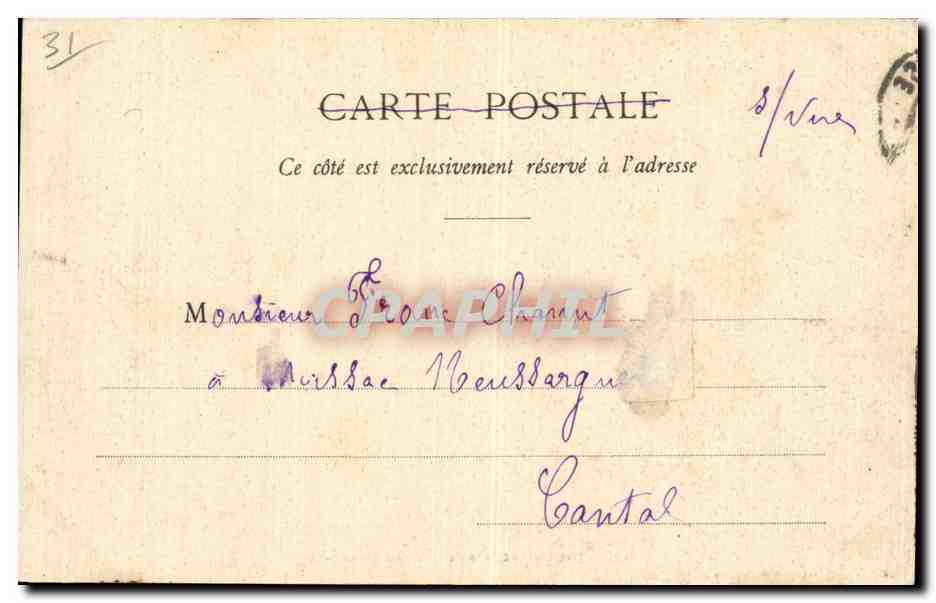 31
CARTE POSTALE
Ce côté est exclusivement réservé à l'adresse
Monsieur Franc Chanut
à Moissac Neussargues
Cantal
CPARHIL